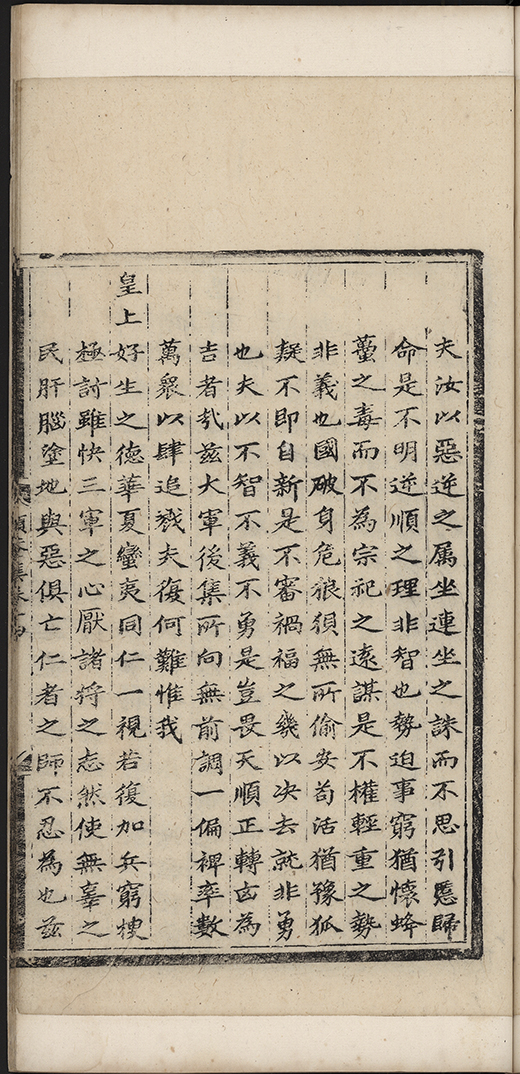 夫汝以惡逆之属坐連坐之誅而不思引慝歸
命是不明逆順之理非智也勢迫事窮猶懷蜂
蠆之毒而不為宗祀之遠謀是不權輕重之勢
非義也國破身危狼狽無所偷安苟活猶豫狐
疑不即自新是不審禍福之幾以决去就非勇
也夫以不智不義不勇是豈畏天順正轉凶為
吉者㢤兹大軍後集所向無前調一偏裨率數
萬衆以肆追戮夫復何難惟我
皇上好生之德華夏蠻夷同仁一視若復加兵窮
極討雖快三軍之心厭諸将之志然使無辜之
民肝腦塗地與惡俱亡仁者之師不忍為也兹